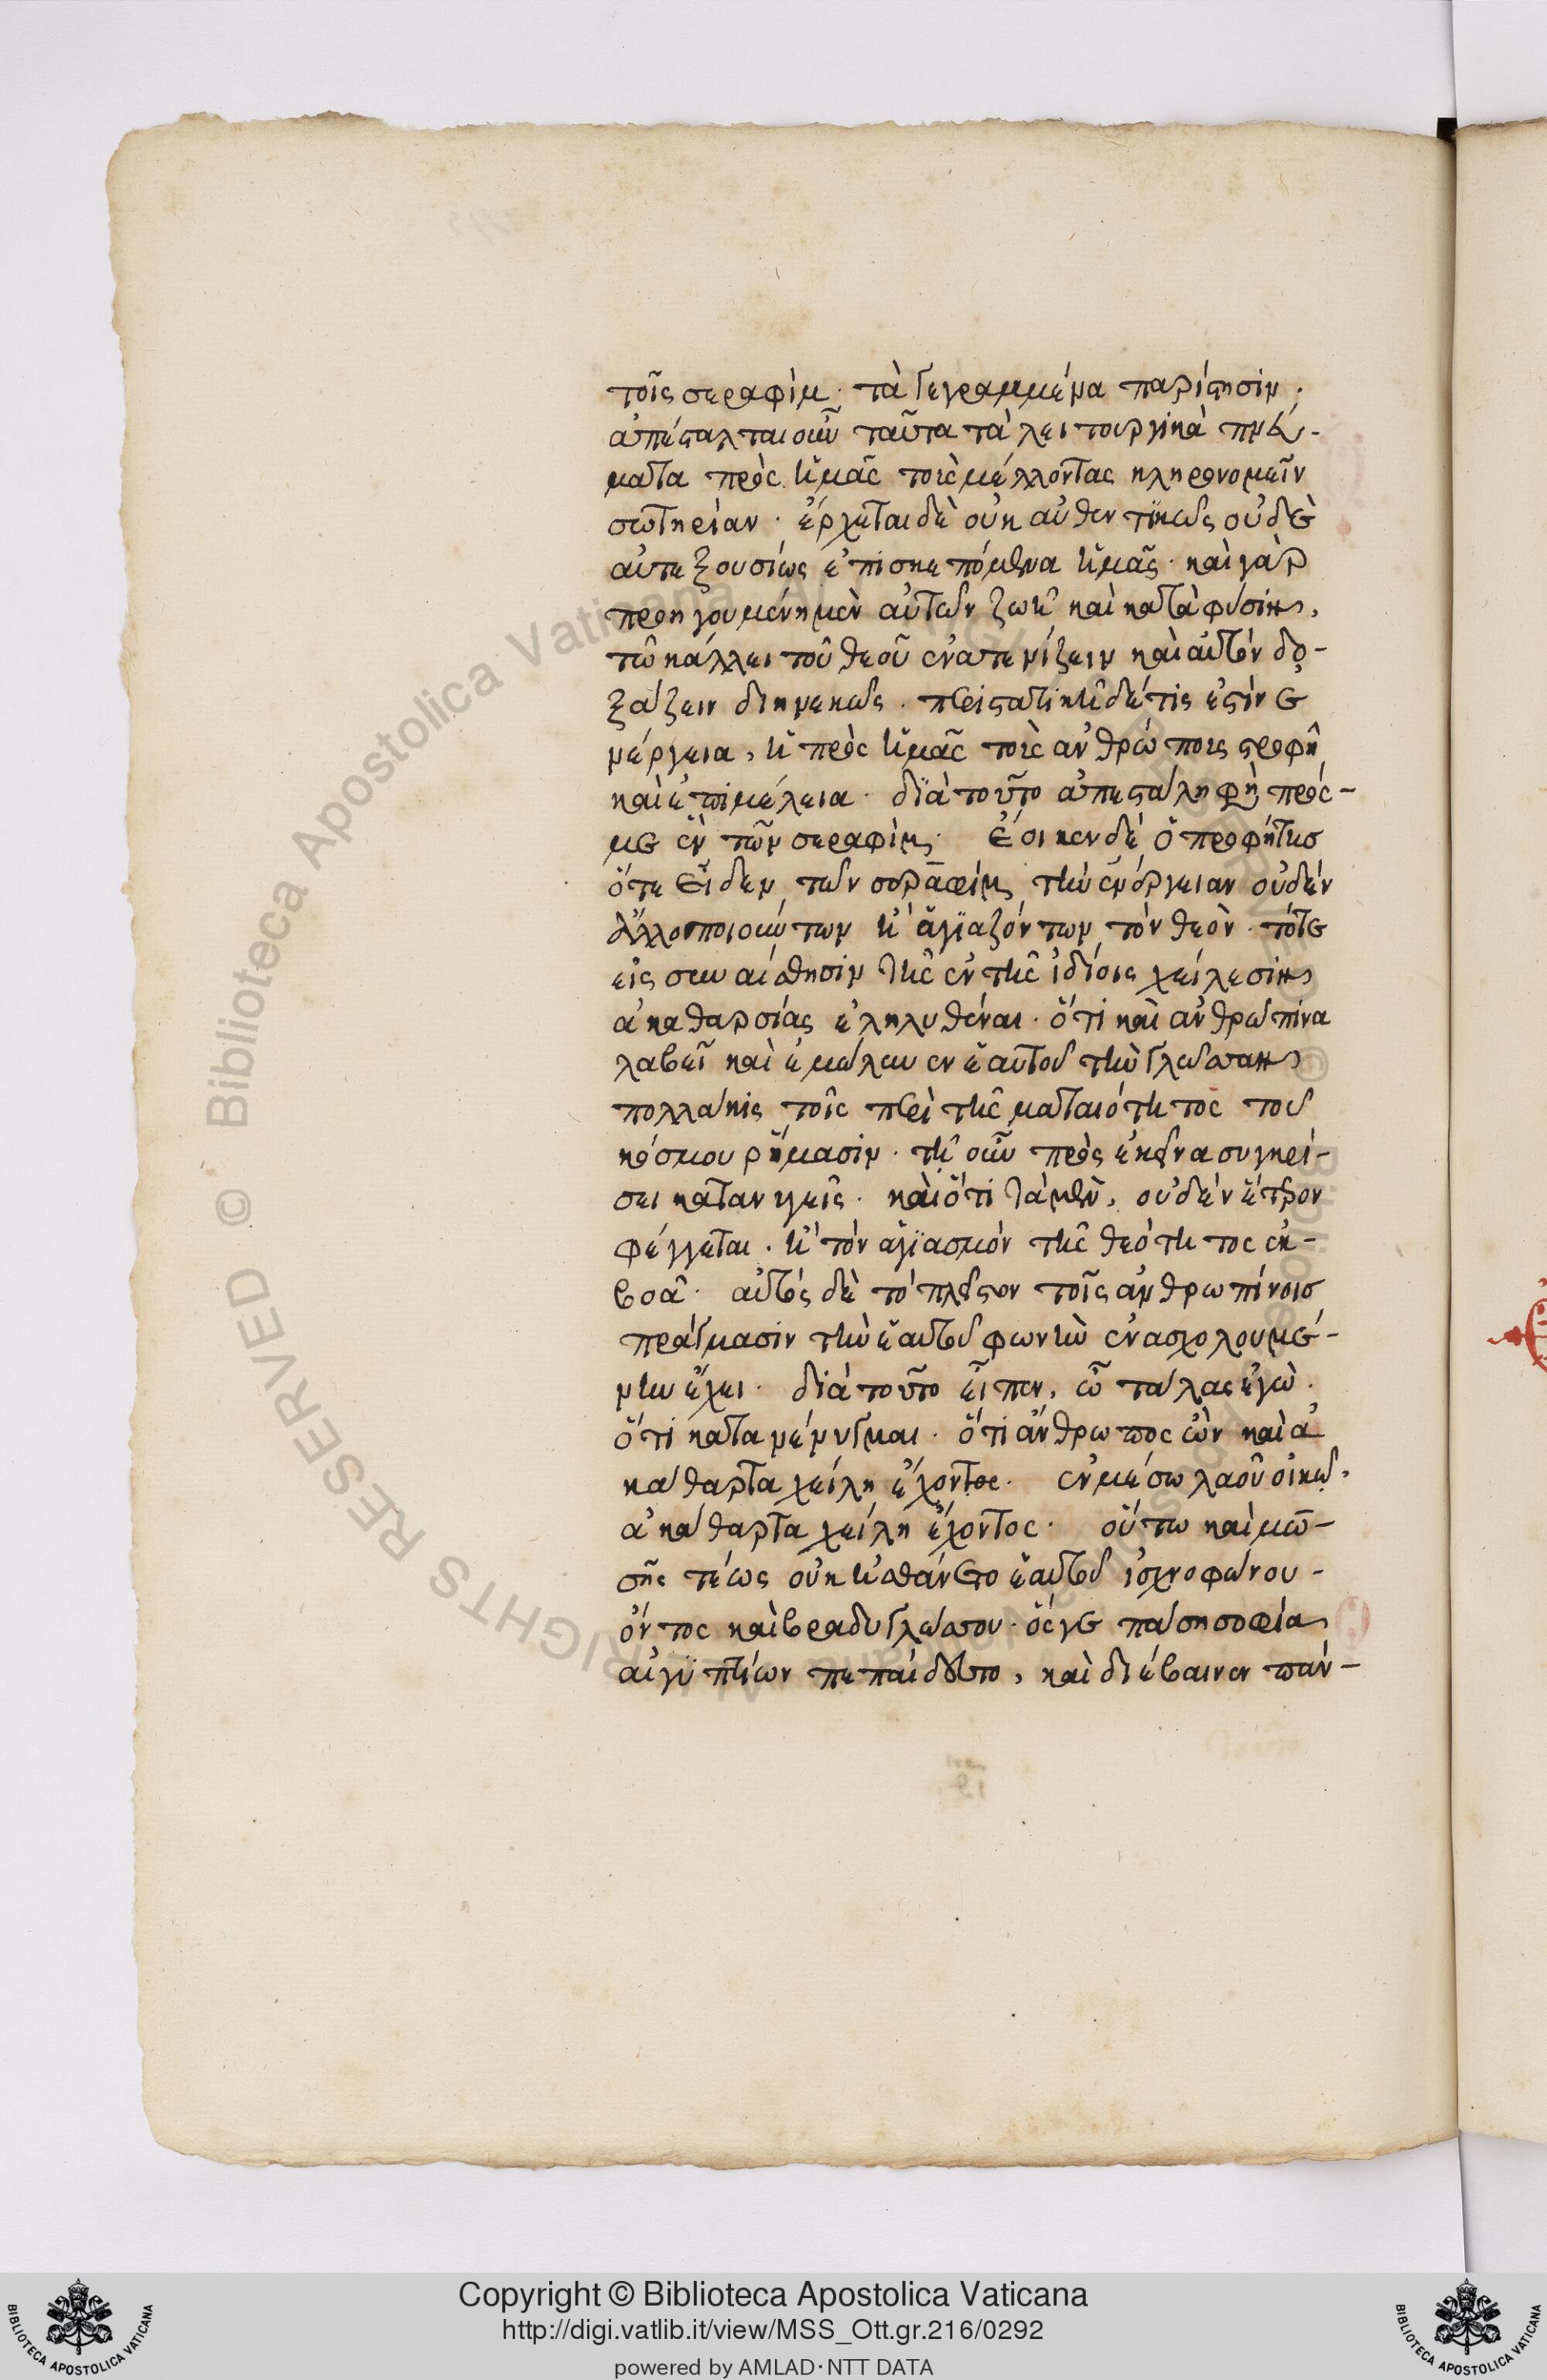 τοῖς σεραφὶμ· τὰ γεγραμμένα παρίστησιν.
ἀπέσταλται οὖν ταῦτα τὰ λειτουργικὰ πνεύ-
ματα πρὸς ἡμᾶς τοὺς μέλλοντας κληρονομεῖν
σωτηρίαν. ἔρχεται δὲ οὐκ αὐθεντικῶς οὐδὲ
αὐτεξουσίως ἐπισκεπτόμενα ἡμᾶς. καὶ γὰρ
προηγουμένη μὲν αὐτῶν ζωὴ καὶ κατὰ φύσιν,
τῶ κάλλει τοῦ θεοῦ ἐνατενίζειν καὶ αὐτὸν δο-
ξάζειν διηνεκῶς. περιστατικὴ δέ τις ἐστὶν ἐ
νέργεια, ἡ πρὸς ἡμᾶς τοὺς ἀνθρώπους στροφὴ
καὶ ἐπιμέλεια. διὰ τοῦτο ἀπεστάλη φησὶ πρός-
με ἓν τῶν σεραφίμ. ἔοικεν δὲ ὁ προφήτης
ὅτε εἶδεν τῶν σεραφὶμ τὴν ἐνέργειαν οὐδὲν
ἄλλο ποιούντων ἢ ἁγιαζόντων τὸν θεόν. τότε
εἰς συναίσθησιν τῆς ἐν τοῖς ἰδίοις χείλεσιν
ἀκαθαρσίας ἐληλυθέναι. ὅτι καὶ ἀνθρώπινα
λαβεῖ καὶ ἐμόλυνεν ἑαυτοῦ τὴν γλῶσσαν
πολλάκις τοῖς περὶ τῆς ματαιότητος τοῦ
κόσμου ῥήμασιν. τῇ οὖν πρὸς ἐκεῖνα συγκρί-
σει κατανυγεὶς. καὶ ὅτι τὰ μὲν, οὐδὲν ἕτερον
φέγγεται. ἢ τὸν ἁγιασμὸν τῆς θεότητος ἐκ-
βοᾶ. αὐτὸς δὲ τὸ πλεῖστον τοῖς ἀνθρωπίνοις
πράγμασιν τὴν ἑαυτοῦ φωνὴν ἐνασχολουμέ-
νην ἔχει. διὰ τοῦτο εἶπεν, ὦ τάλας ἐγὼ.
ὅτι κατανένυγμαι. ὅτι ἄνθρωπος ὢν καὶ ἀ
κάθαρτα χείλη ἔχοντος. ἐν μέσω λαοῦ οἰκῶ,
ἀκάθαρτα χείλη ἔχοντος. οὕτω καὶ μω-
σῆς τέως οὐκ ἠσθάνετο ἑαυτοῦ ἰσχνοφώνου-
ὄντος καὶ βραδυγλώσσου. ὅς γε πάση σοφία
αἰγυπτίων πεπαίδευτο, καὶ διέβαινεν παν-
Copyright © Biblioteca Apostolica Vaticana
http://digi.vatlib.it/view/MSS_Ott.gr.216/0292
powered by AMLAD·NTT DATA